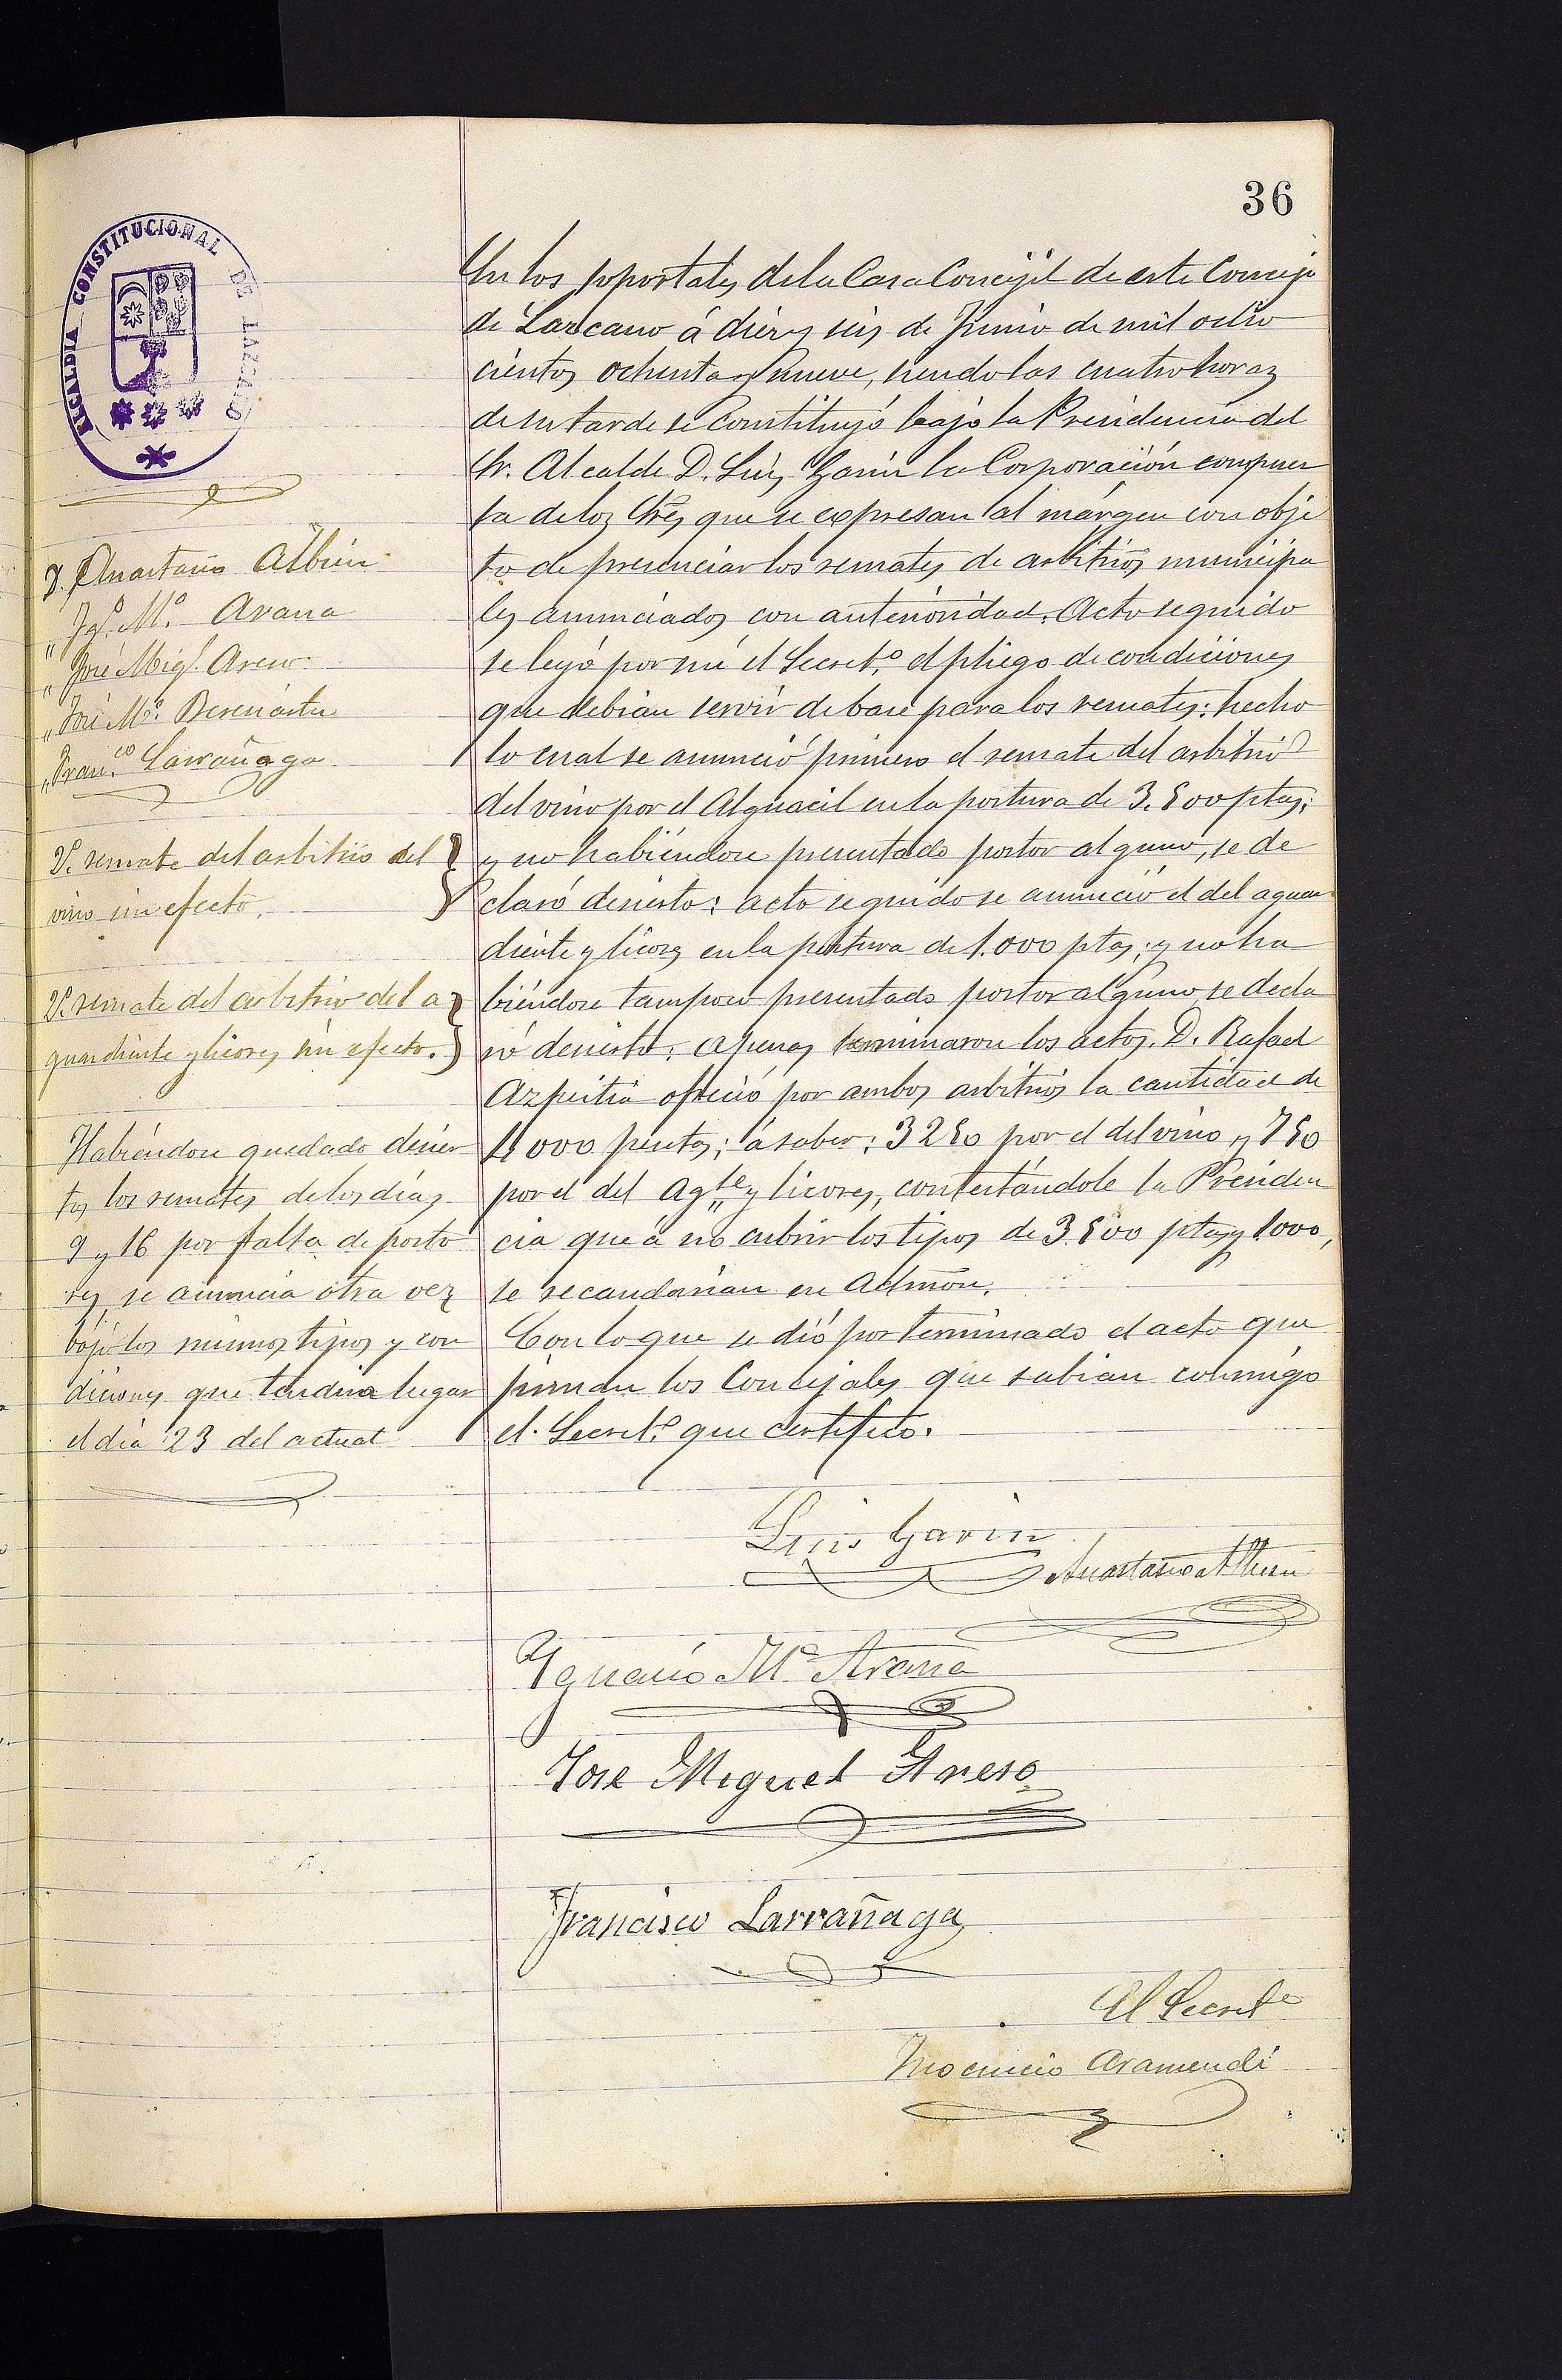 36
ALCALDIA CONSTITUCIONAL DE LAZCANO
En los soportales de la Casa Concejil de este Concejo
de Lazcano á diez y seis de Junio de mil ocho
cientos ochenta y nueve, siendo las cuatro horas
de su tarde se constituyó bajo la Presidencia del
Sr. Alcalde D. Luis Garin la Corporación compues
ta de los Sres que se expresan al márgen con obje
to de presenciar los remates de arbitrios municipa
les anunciados con anterioridad. Acto seguido
se leyó por mi el Secret.º el pliego de condiciones
que debian servir de base para los remates: hecho
lo cual se anunció primero el remate del arbitrio
del vino por el Alguacil en la postura de 3.500 ptas;
y no habiéndose presentado postor alguno, se de
claró desierto: acto seguido se anunció el del aguar
diente y licores en la postura de 1.000 ptas; y no ha
biéndose tampoco presentado postor alguno, se decla
ró desierto: apenas terminaron los actos, D. Rafael
Azpeitia ofreció por ambos arbitrios la cantidad de
4000 pesetas; á saber: 3250 por el del vino y 750
por el del Agte y licores, contestándole la Presiden
cia que á no cubrir los tipos de 3.500 ptas y 1.000,
se recaudarian en Admón.
Con lo que se dió por terminado el acto que
firman los Concejales que sabian conmigo
el Secret.º que certifico.
D. Anastasio Albisu
" Ig.º M.ª Arana
" José Mig.l Areso
" José M.ª Beresiartu
" Fran.co Larrañaga
2.º remate del arbitrio del
vino sin efecto.
2.º remate del arbitrio del a
guardiente y licores sin efecto.
Habiéndose quedado desier
tos los remates de los días
9 y 16 por falta de posto
res, se anuncia otra vez
bajo los mismos tipos y con
diciones que tendra lugar
el dia 23 del actual
Luis Garin
Anastasio Albisu
Ygnacio M.ª Arana
Jose Miguel Areso
Francisco Larrañaga
El Secret.º
Inocencio Aramendi